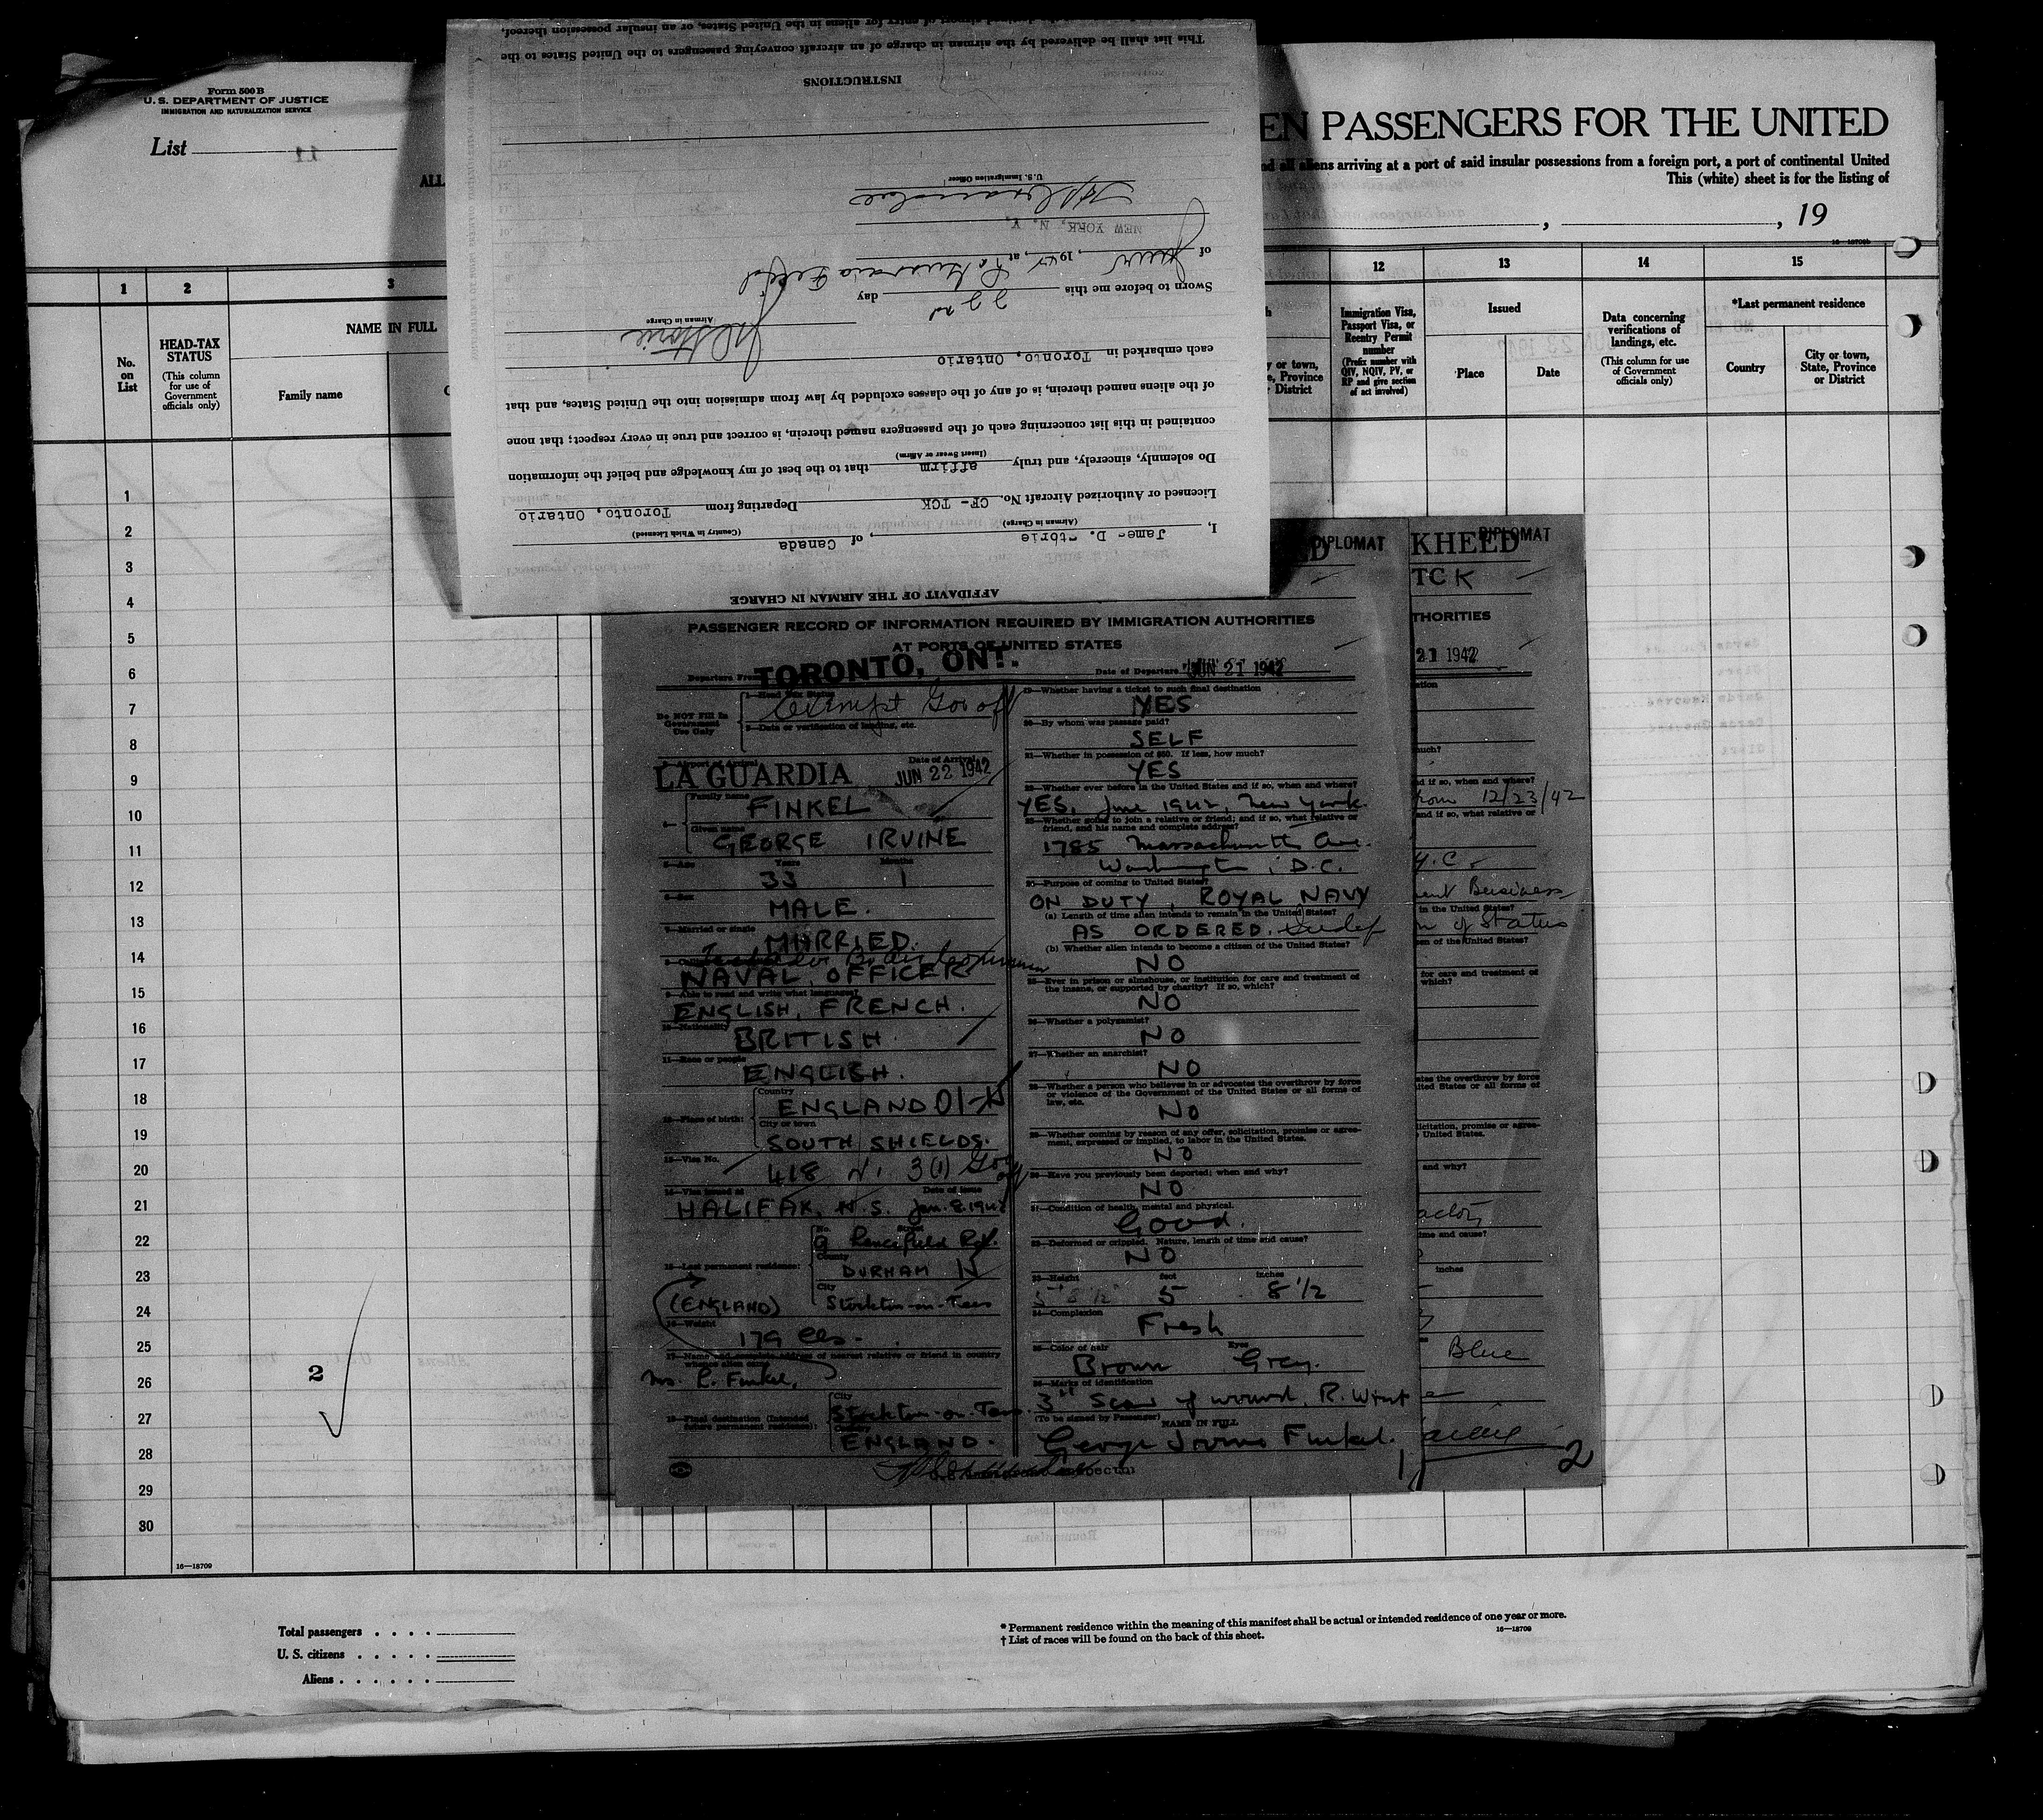 Form 500 B
U. S. DEPARTMENT OF JUSTICE
IMMIGRATION AND NATURALIZATION SERVICE
List
ALL
EN PASSENGERS FOR THE UNITED
nd all aliens arriving at a port of said insular possessions from a foreign port, a port of continental United
This (white) sheet is for the listing of
, , 19
1 2 3 12 13 14 15
No. on List
HEAD-TAX STATUS
(This column for use of Government officials only)
NAME IN FULL
Family name
y or town,
e, Province
r District
Immigration Visa, Passport Visa, or Reentry Permit number
(Prefix number with QIV, NQIV, PV, or RP and give section of act involved)
Issued
Place
Date
Data concerning verifications of landings, etc.
(This column for use of Government officials only)
*Last permanent residence
Country
City or town, State, Province or District
AFFIDAVIT OF THE AIRMAN IN CHARGE
I, James D. Storie, of Canada
(Airman in Charge) (Country in Which Licensed)
Licensed or Authorized Aircraft No. CF- TCK Departing from Toronto, Ontario
Do solemnly, sincerely, and truly affirm that to the best of my knowledge and belief the information
(Insert Swear or Affirm)
contained in this list concerning each of the passengers named therein, is correct and true in every respect; that none
of the aliens named therein, is of any of the classes excluded by law from admission into the United States, and that
each embarked in Toronto, Ontario
Airman in Charge
Sworn to before me this 22nd day
of June, 1942, at La Guardia Field
NEW YORK, N. Y.
U. S. Immigration Officer
INSTRUCTIONS
This list shall be delivered by the airman in charge of an aircraft conveying passengers to the United States to the
of entry for aliens in the United States, or an insular possession thereof,
DIPLOMAT
PASSENGER RECORD OF INFORMATION REQUIRED BY IMMIGRATION AUTHORITIES
AT PORTS OF UNITED STATES
Departure From TORONTO, ONT.
Date of Departure JUN 21 1942
Do NOT Fill In
Government
Use Only
1—Head Tax Status
Exempt Gov off
2—Data or verification of landing, etc.
3—Airport of Arrival
Date of Arrival
LA GUARDIA JUN 22 1942
Family name
FINKEL
4—
Given name
GEORGE IRVINE
5—Age Years Months
33 1
6—Sex
MALE.
7—Married or single
MARRIED.
NAVAL OFFICER
9—Able to read and write what languages?
ENGLISH, FRENCH.
10—Nationality
BRITISH.
11—Race or people
ENGLISH.
12—Place of birth:
Country
ENGLAND
City or town
SOUTH SHIELDS.
13—Visa No.
418 3(1) Gov
14—Visa issued at
Date of issue
HALIFAX, N.S. Jan. 8. 1942
15—Last permanent residence:
No. Street
9 Rd.
County
DURHAM
City
(ENGLAND) Stockton-on-Tees
16—Weight
179 lbs.
17—Name and complete address of nearest relative or friend in country
whence alien came
Finkel,
18—Final destination (Intended
future permanent residence):
City
Stockton-on-Tees.
Country
ENGLAND.
19—Whether having a ticket to such final destination
YES
20—By whom was passage paid?
SELF
21—Whether in possession of $50. If less, how much?
YES
22—Whether ever before in the United States and if so, when and where?
YES, June 1942, New York.
23—Whether going to join a relative or friend; and if so, what relative or
friend, and his name and complete address?
1785 Massachusetts Ave.
Washington, D.C.
24—Purpose of coming to United States?
ON DUTY, ROYAL NAVY
(a) Length of time alien intends to remain in the United States?
AS ORDERED. Indef
(b) Whether alien intends to become a citizen of the United States?
NO
25—Ever in prison or almshouse, or institution for care and treatment of
the insane, or supported by charity? If so, which?
NO
26—Whether a polygamist?
NO
27—Whether an anarchist?
NO
28—Whether a person who believes in or advocates the overthrow by force
or violence of the Government of the United States or all forms of
law, etc.
NO
29—Whether coming by reason of any offer, solicitation, promise or agree-
ment, expressed or implied, to labor in the United States.
NO
30—Have you previously been deported; when and why?
NO
31—Condition of health, mental and physical.
Good.
32—Deformed or crippled. Nature, length of time and cause?
NO
33—Height feet inches
5 8 1/2
34—Complexion
Fresh
35—Color of hair Eyes
Brown Grey.
36—Marks of identification
3" Scar of wound, R. Wrist
(To be signed by Passenger) NAME IN FULL
George Irvine Finkel.
1
DIPLOMAT
KHEED
TCK
THORITIES
21 1942
ation
much?
d if so, when and where?
from 12/23/42
and if so, what relative or
Y.C.
ent Business
in the United States?
n of Status
zen of the United States?
for care and treatment of
which?
ates the overthrow by force
ited States or all forms of
licitation, promise or agree-
United States.
and why?
actory
ime and cause?
inches
Blue
2
1
2
3
4
5
6
7
8
9
10
11
12
13
14
15
16
17
18
19
20
21
22
23
24
25
26
27
28
29
30
2
16—18709
Total passengers . . . .
U. S. citizens . . . . .
Aliens . . . . . .
* Permanent residence within the meaning of this manifest shall be actual or intended residence of one year or more.
† List of races will be found on the back of this sheet.
16—18709